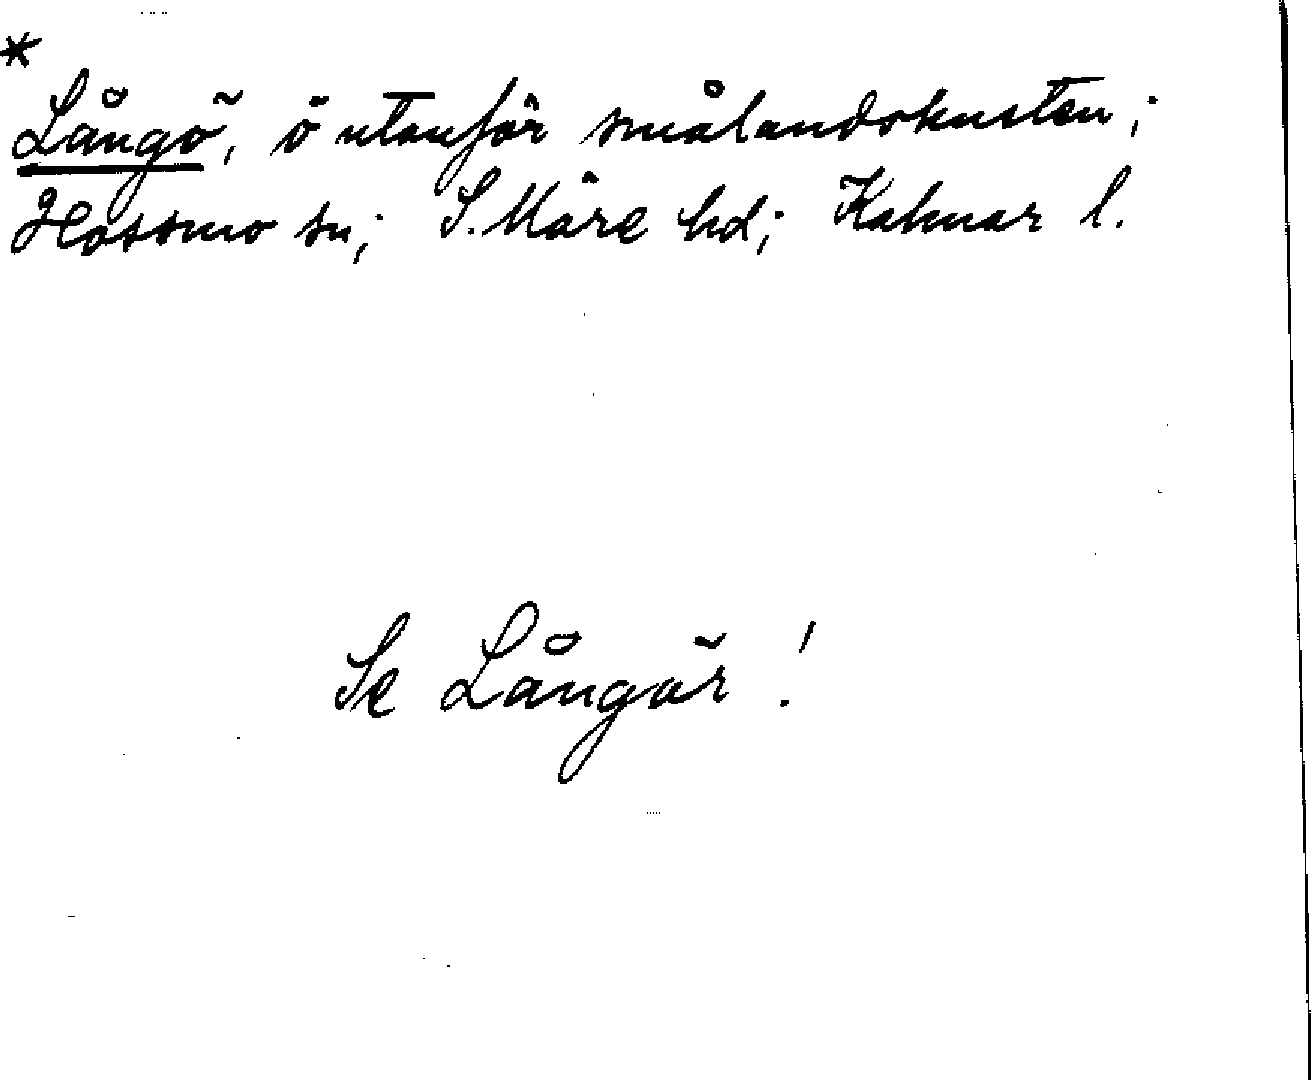 *
Långö, ö utanför smålandskusten;
Hossmo sn; S. Möre hd; Kalmar l.
Se Långör!